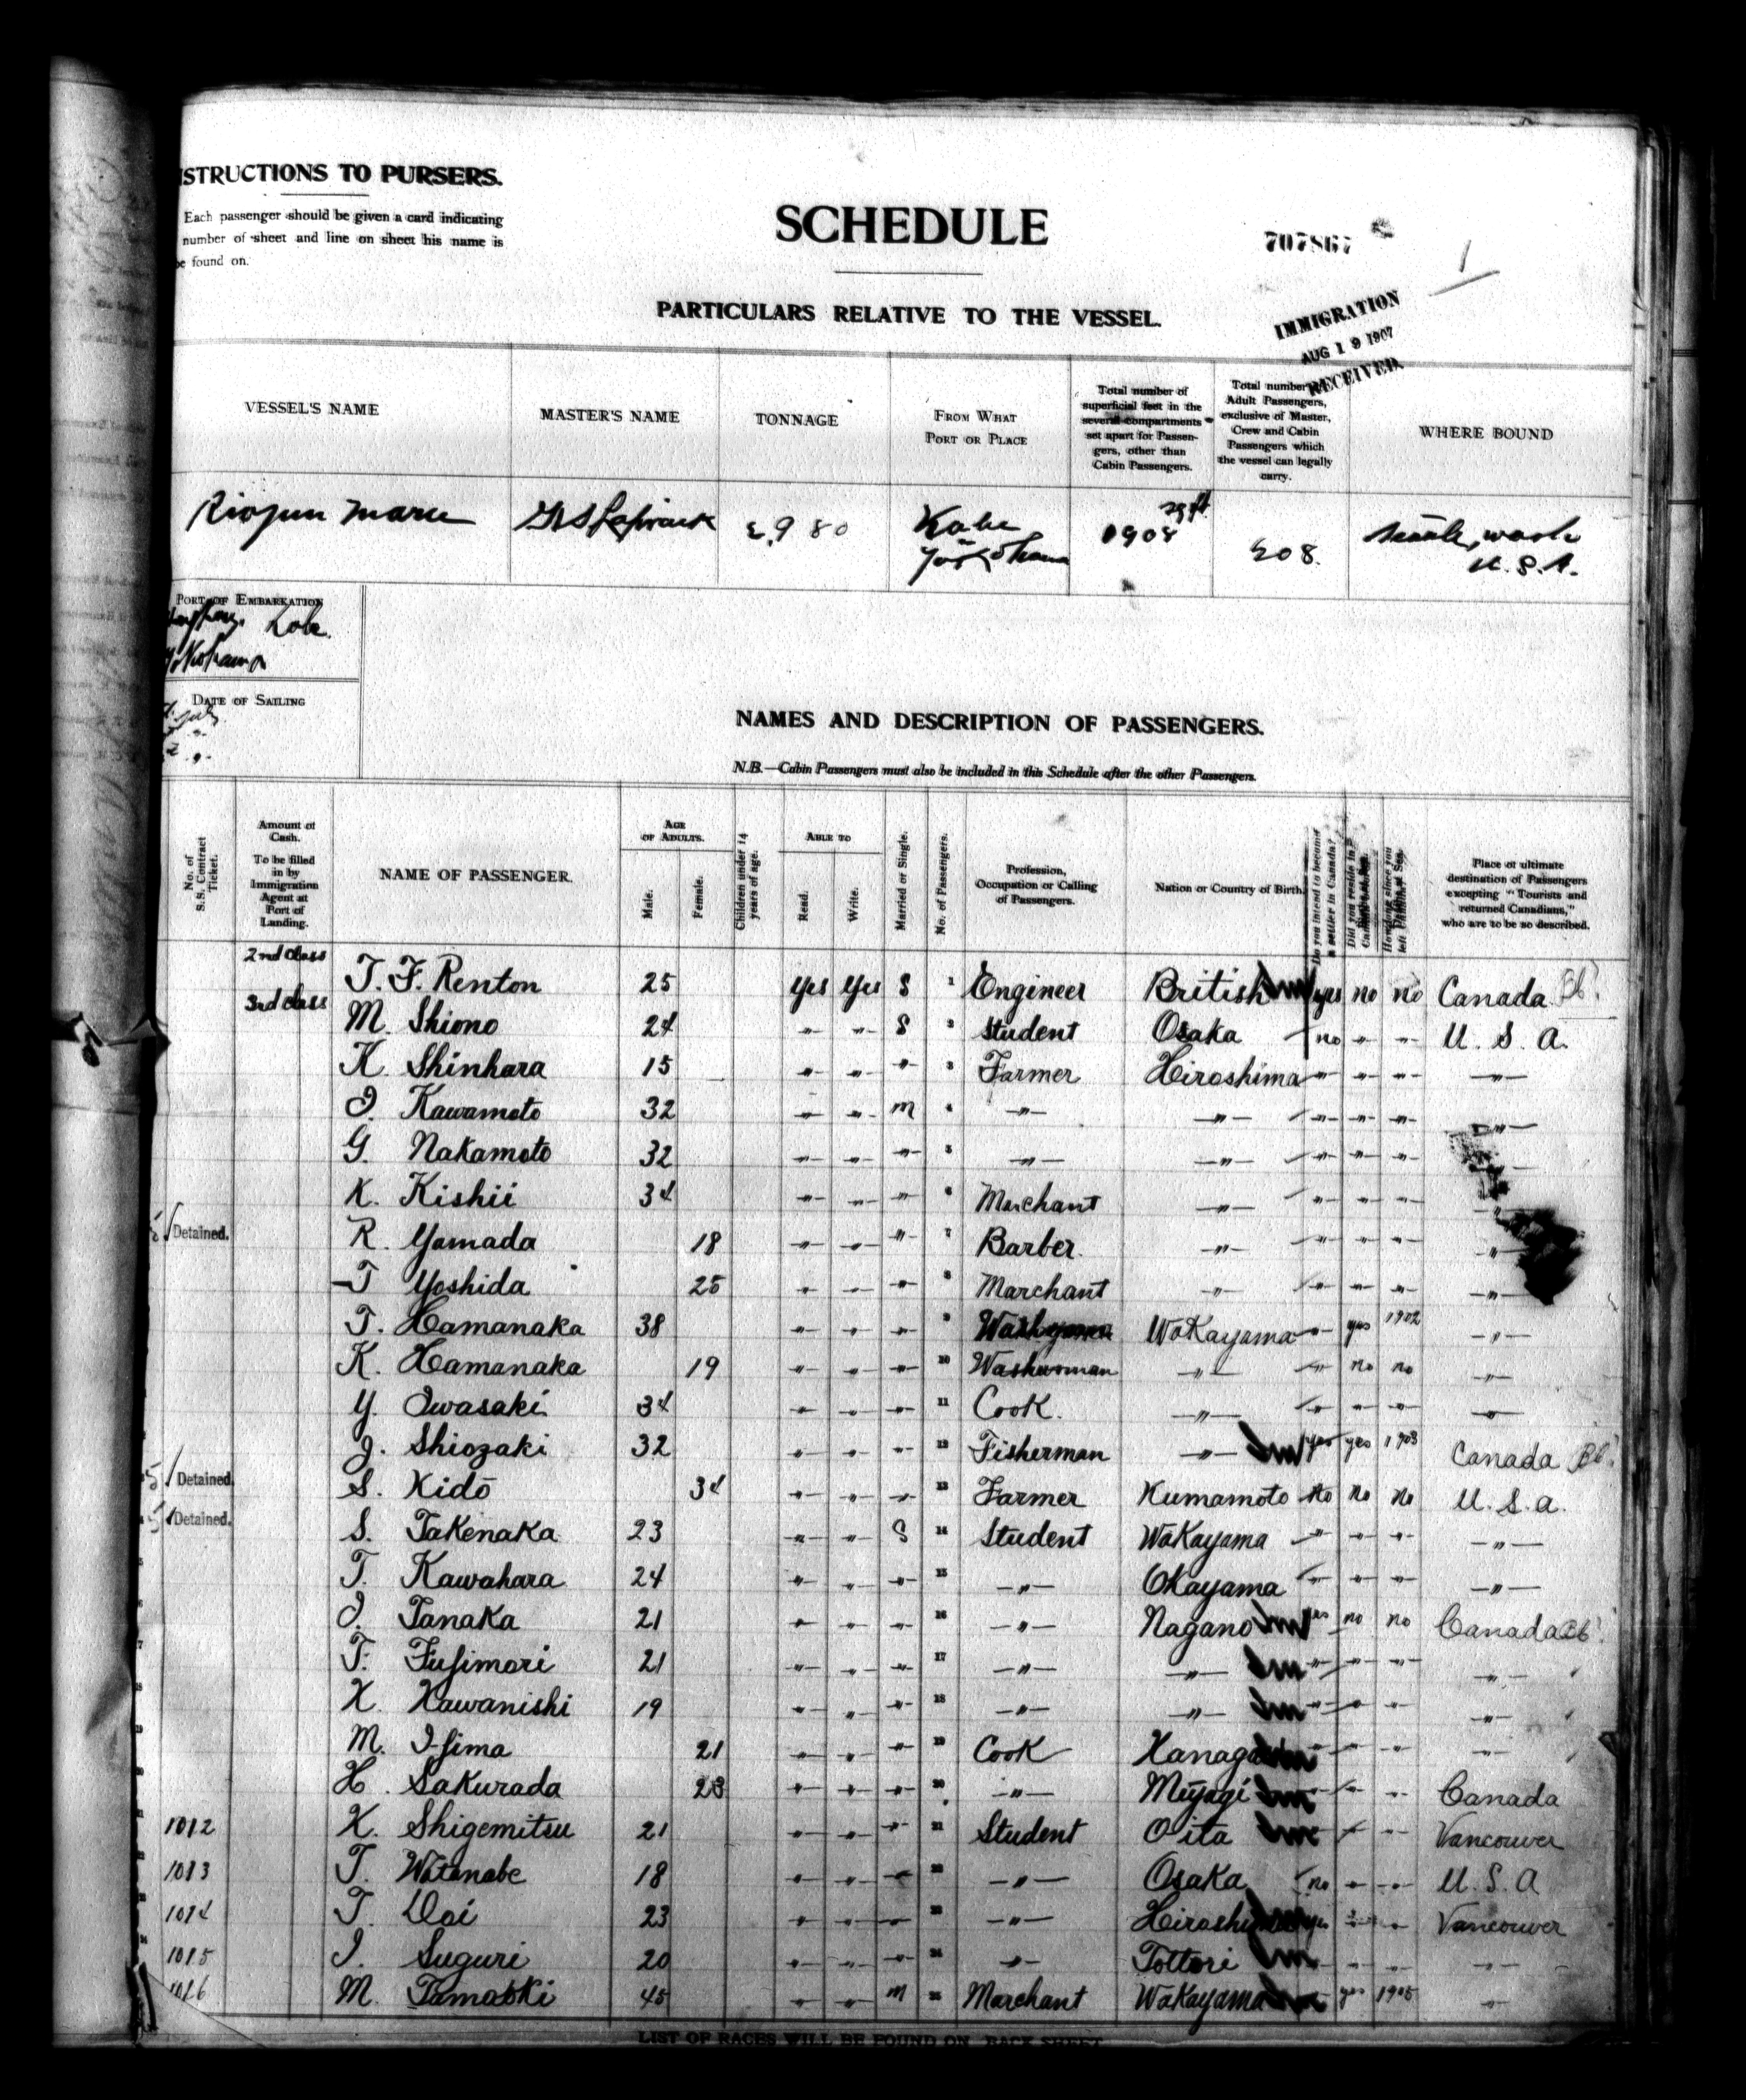 STRUCTIONS TO PURSERS.
Each passenger should be given a card indicating
number of sheet and line on sheet his name is
be found on.
SCHEDULE
707867
1
PARTICULARS RELATIVE TO THE VESSEL.
IMMIGRATION
AUG 19 1907
RECEIVED
VESSEL'S NAME
MASTER'S NAME
TONNAGE
FROM WHAT PORT OR PLACE
Total number of superficial feet in the several compartments set apart for Passengers, other than Cabin Passengers.
Total number Adult Passengers, exclusive of Master, Crew and Cabin Passengers which the vessel can legally carry.
WHERE BOUND
Riojun Maru
Kobe
Yokohama
sq ft.
208.
Seattle, Wash
U.S.A.
PORT OF EMBARKATION
Kobe.
Yokohama
DATE OF SAILING
NAMES AND DESCRIPTION OF PASSENGERS.
N.B.—Cabin Passengers must also be included in this Schedule after the other Passengers.
No. of S.S. Contract Ticket.
Amount of Cash. To be filled in by Immigration Agent at Port of Landing.
NAME OF PASSENGER.
AGE OF ADULTS.
Male.
Female.
Children under 14 years of age.
ABLE TO
Read.
Write.
Married or Single.
No. of Passengers.
Profession, Occupation or Calling of Passengers.
Nation or Country of Birth.
Do you intend to become a settler in Canada?
Place of ultimate destination of Passengers excepting "Tourists and returned Canadians," who are to be so described.
2nd class
T. F. Renton 25 yes yes S 1 Engineer British yes no no Canada
3rd class
M. Shiono 24 " " S 2 Student Osaka no " " U. S. A.
K. Shinhara 15 " " " 3 Farmer Hiroshima " " " "
I. Kawamoto 32 " " m 4 " " " " " "
G. Nakamoto 32 " " " 5 " " " " " "
K. Kishii 34 " " " 6 Merchant " " " " "
Detained. R. Yamada 18 " " " 7 Barber. " " " " "
T Yoshida 25 " " " 8 Marchant " " " " "
T. Hamanaka 38 " " " 9 WaKayama " yes 1902 "
K. Hamanaka 19 " " " 10 Washwoman " " no no "
Y. Iwasaki 34 " " " 11 Cook. " " " " "
J. Shiozaki 32 " " " 12 Fisherman " yes yes 1903 Canada
Detained. S. Kidō 34 " " " 13 Farmer Kumamoto No No No U. S. a.
Detained. S. Takenaka 23 " " S 14 Student WaKayama " " " "
T. Kawahara 24 " " " 15 " Okayama " " " "
I. Tanaka 21 " " " 16 " Nagano yes no no Canada
T. Fujimori 21 " " " 17 " " " " " "
K. Kawanishi 19 " " " 18 " " " " " "
M. Ijima 21 " " " 19 Cook " " " "
H. Sakurada 23 " " " 20 " Miyagi " " " Canada
1012 K. Shigemitsu 21 " " " 21 Student Oita " " Vancouver
1013 T. Watanabe 18 " " " 22 " Osaka no " " U. S. A
1014 T. Doi 23 " " " 23 " yes " " Vancouver
1015 I. Suguri 20 " " " 24 " Tottori " " " "
1016 M. Tamaoki 45 " " m 25 Marchant WaKayama yes 1905 "
LIST OF RACES WILL BE FOUND ON BACK SHEET